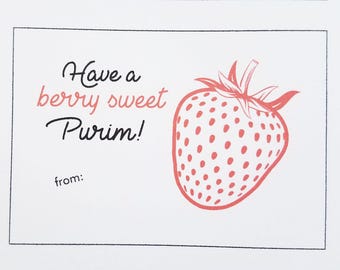 Have a
berry sweet
Purim!
from: